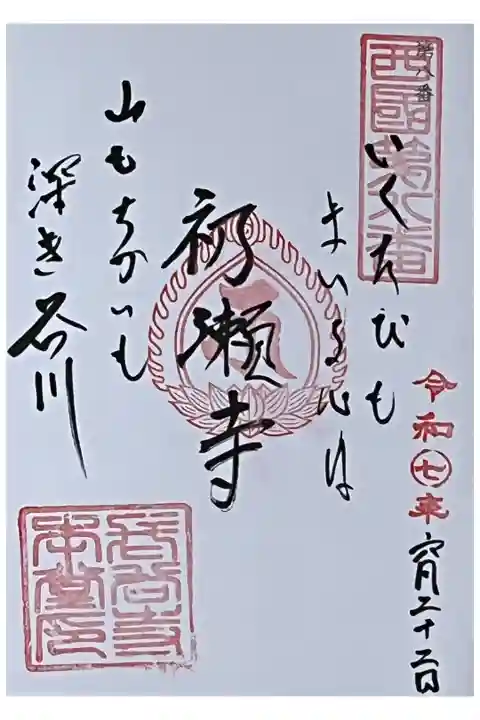 第八番
西國第八番
いくたびも
まいる心は
初瀬寺
山もちかいも
深き谷川
令和七年
長谷寺
本堂印